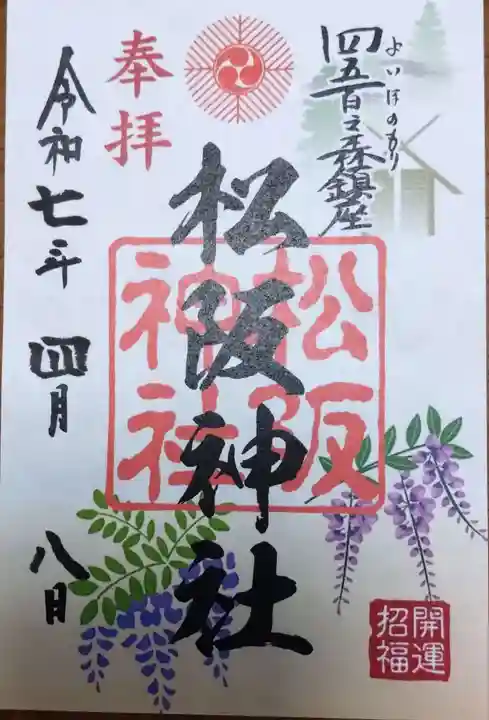 四五百之森鎮座
よいほのもり
奉拝
松阪神社
松阪
神社
令和七年 四月 八日
開運
招福